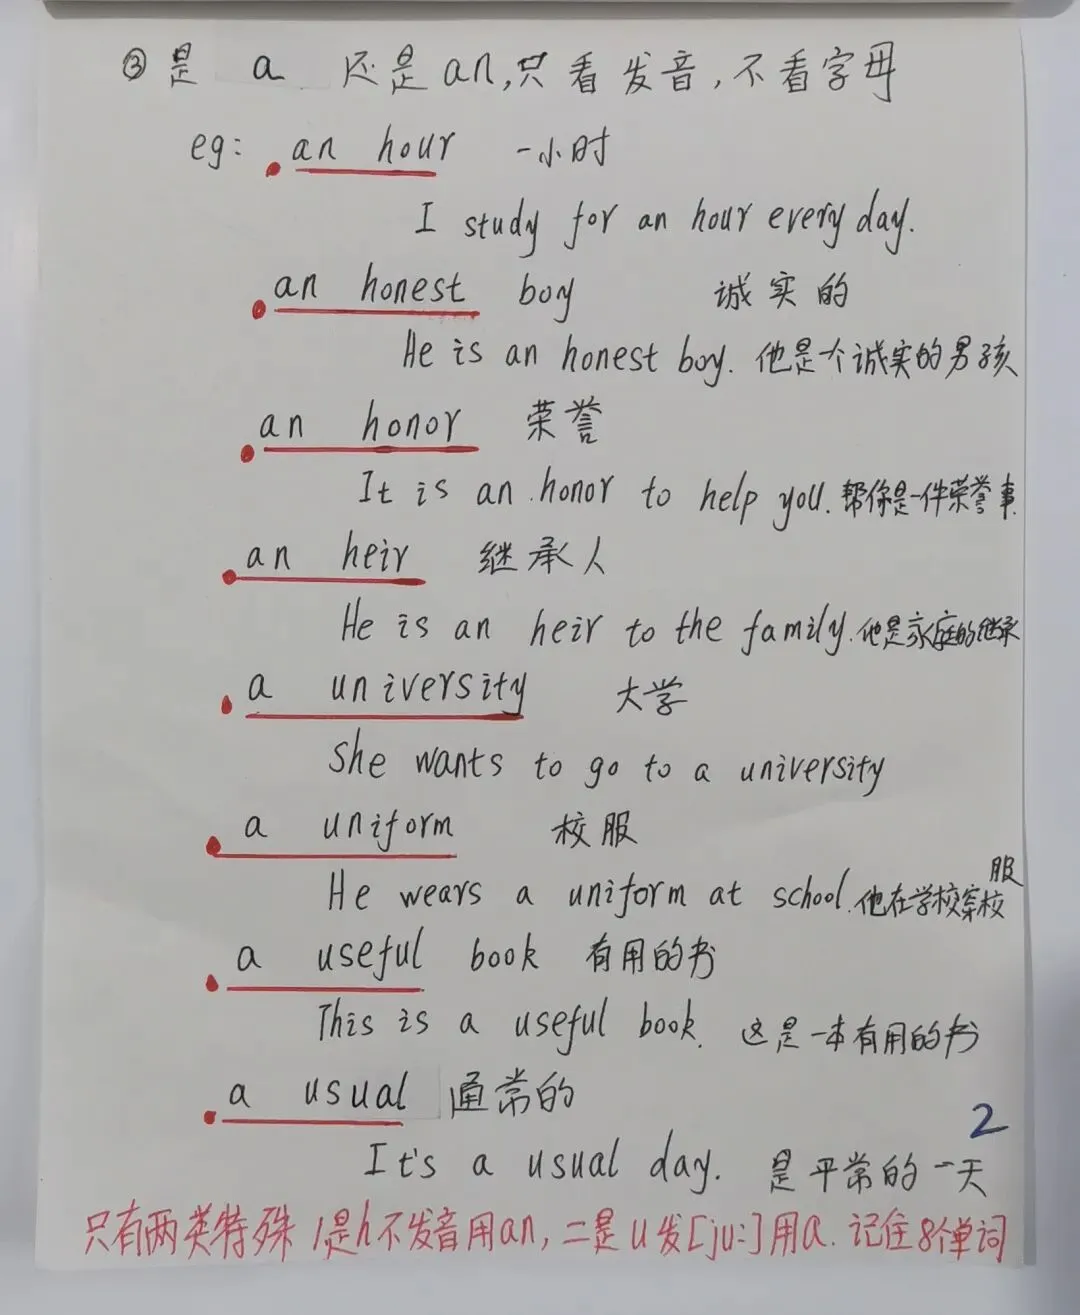 ③是 a 还是an,只看发音,不看字母
eg: an hour 一小时
I study for an hour every day.
an honest boy 诚实的
He is an honest boy. 他是个诚实的男孩
an honor 荣誉
It is an honor to help you. 帮你是一件荣誉事.
an heir 继承人
He is an heir to the family. 他是家庭的继承
a university 大学
She wants to go to a university
a uniform 校服
He wears a uniform at school. 他在学校穿校服
a useful book 有用的书
This is a useful book. 这是一本有用的书
a usual 通常的
2
It's a usual day. 是平常的一天
只有两类特殊 1是h不发音用an, 二是u发[ju:]用a. 记住8个单词